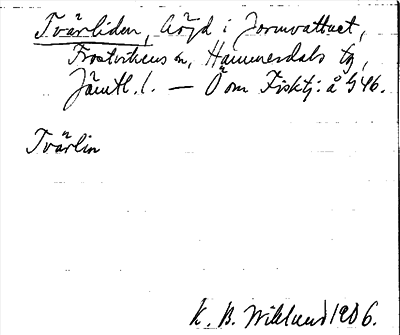 Tvärliden, höjd i Jormvattnet,
Frostvikens sn, Hammerdals tg,
Jämtl. l. — Ö om Fisktj: å § 46.
Tvärlin
K. B. Wiklund 1906.